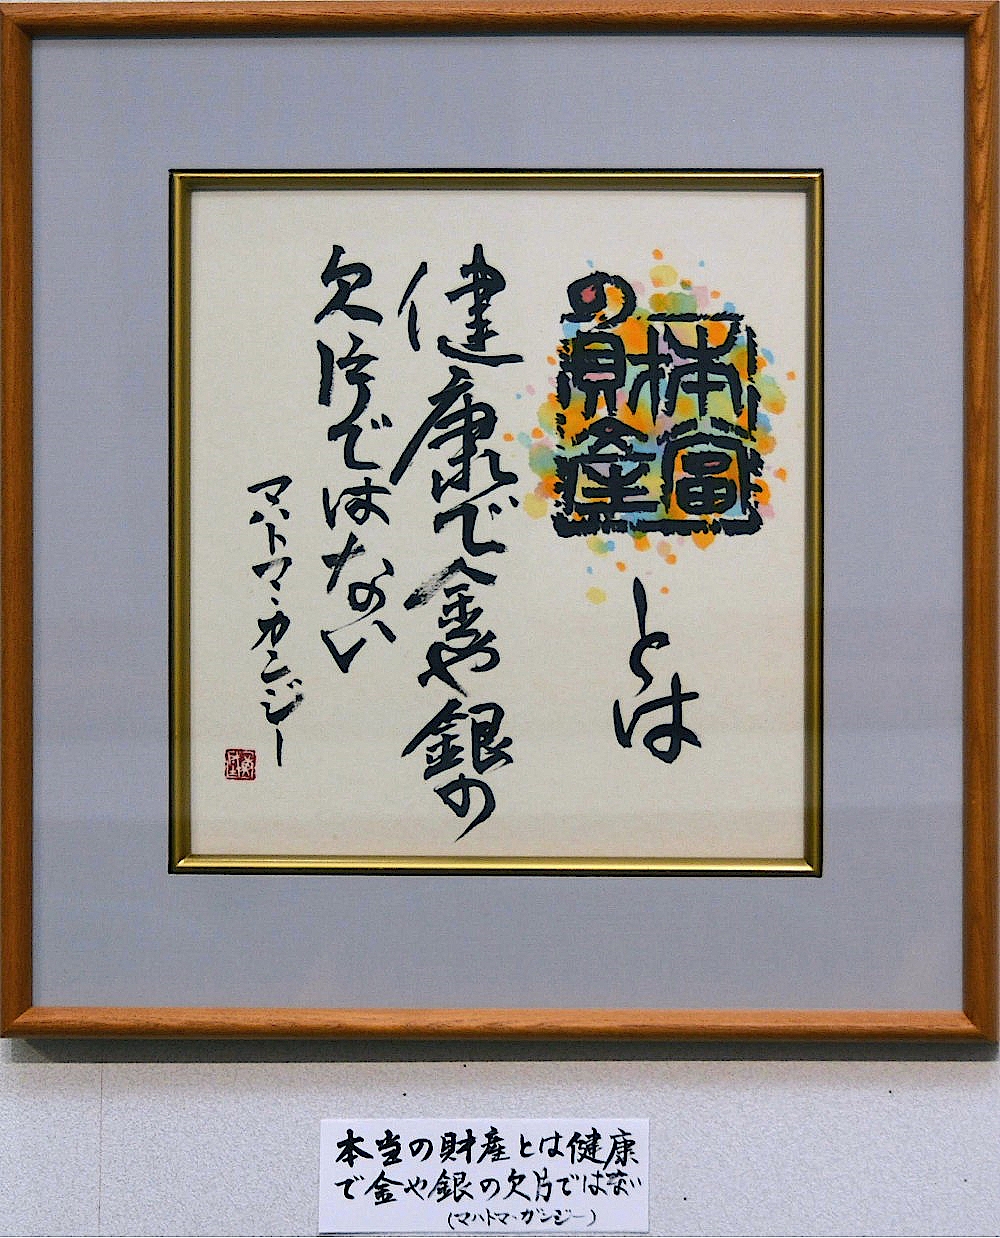 本當の財産
とは
健康で金や銀の
欠片ではない
マハトマ・ガンジー
本当の財産とは健康
で金や銀の欠片ではない
(マハトマ・ガンジー)